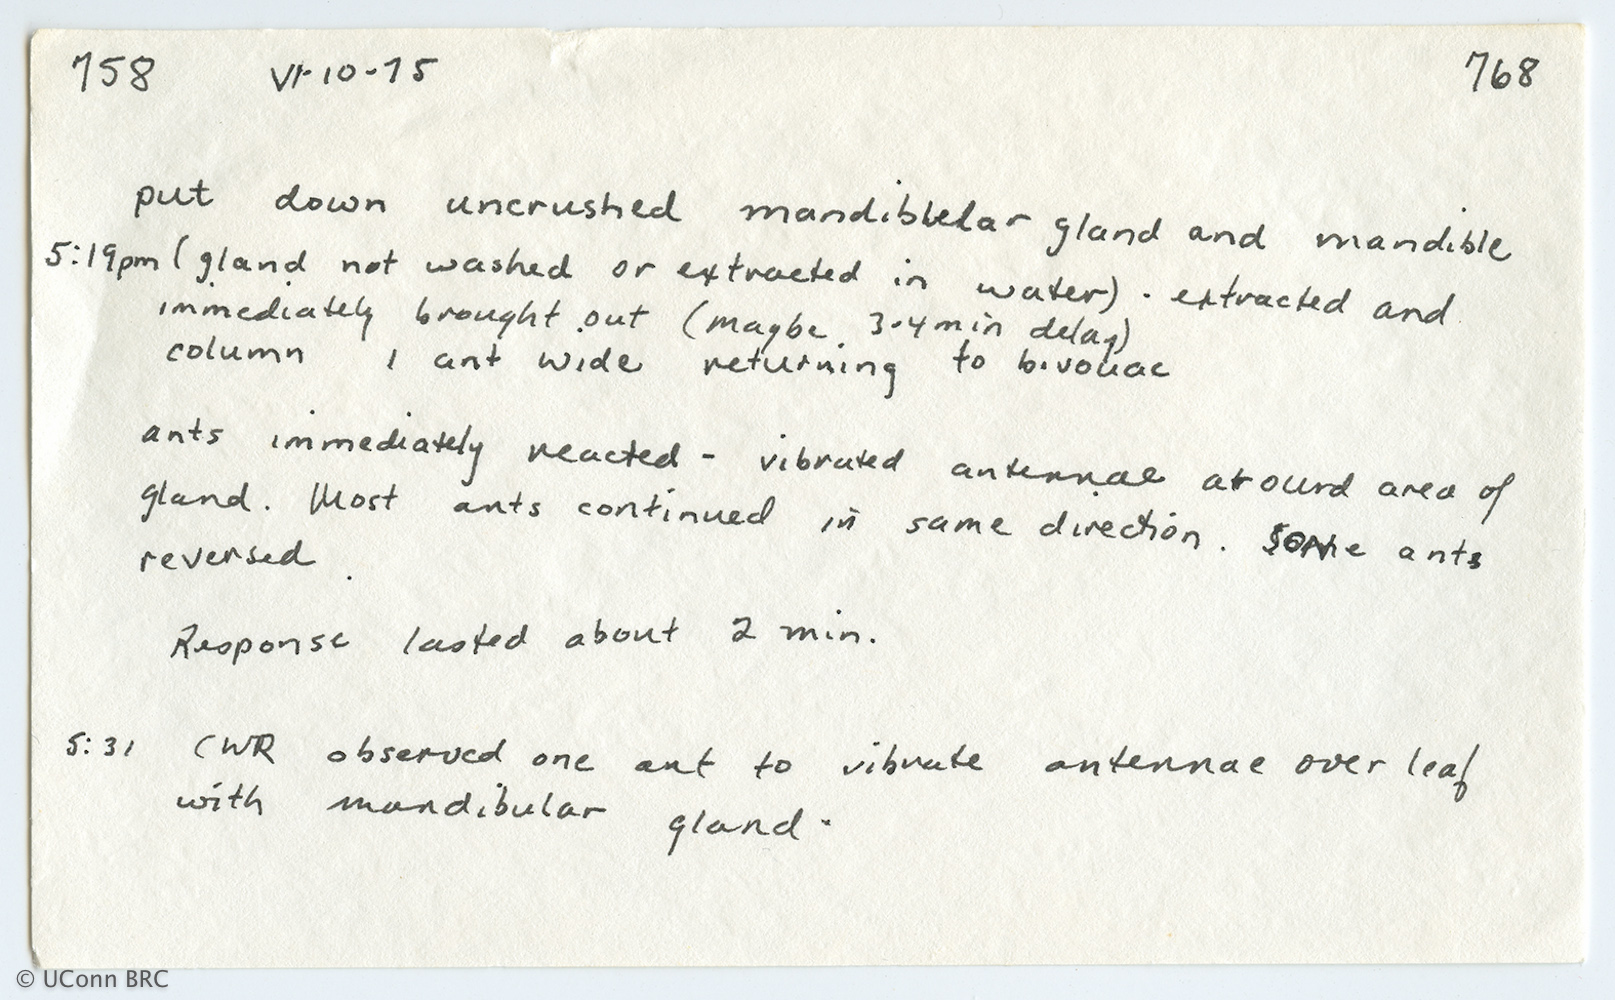 758 VI-10-75 768
put down uncrushed mandiblular gland and mandible
5:19pm (gland not washed or extracted in water). extracted and
immediately brought out (maybe 3-4 min delay)
column 1 ant wide returning to bivouac
ants immediately reacted - vibrated antennae around area of
gland. Most ants continued in same direction. Some ants
reversed.
Response lasted about 2 min.
5:31 CWR observed one ant to vibrate antennae over leaf
with mandibular gland.
© UConn BRC